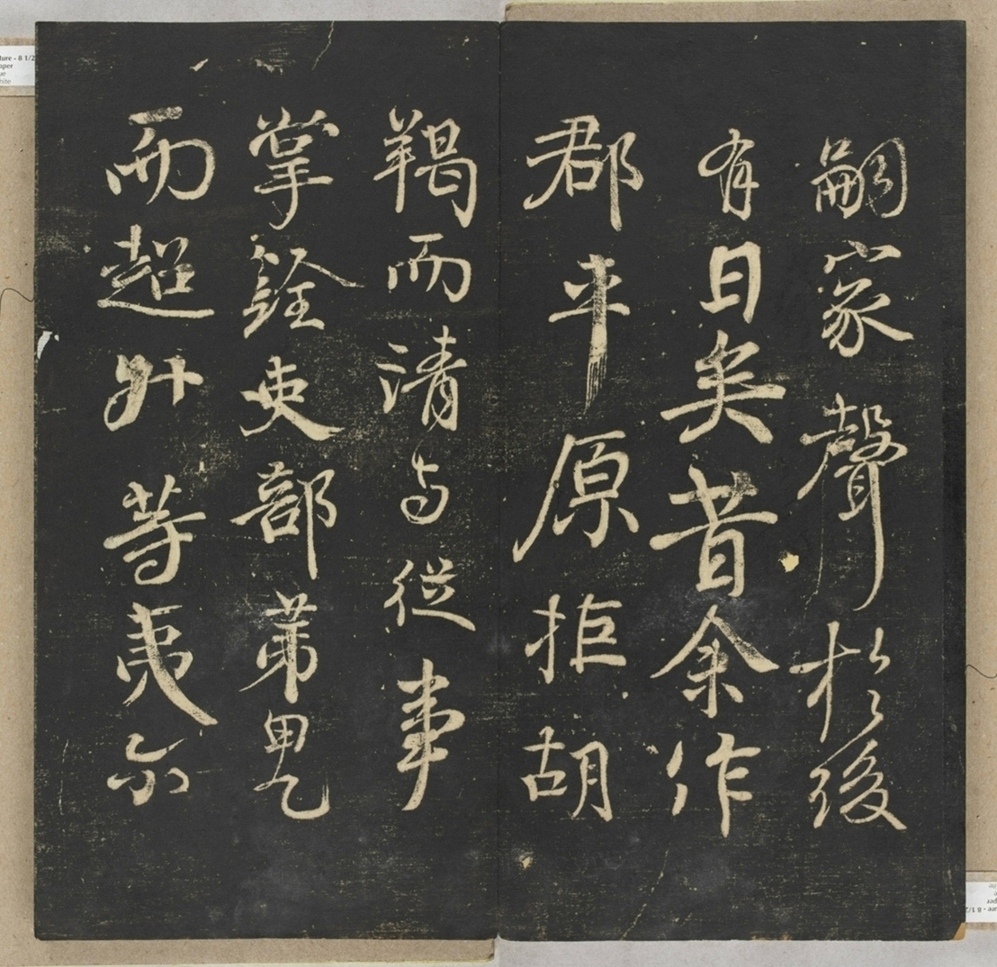 嗣家聲於後
有日矣昔余作
郡平原拒胡
羯而清与從事
掌銓吏部苐甲乙
而超升等夷尓